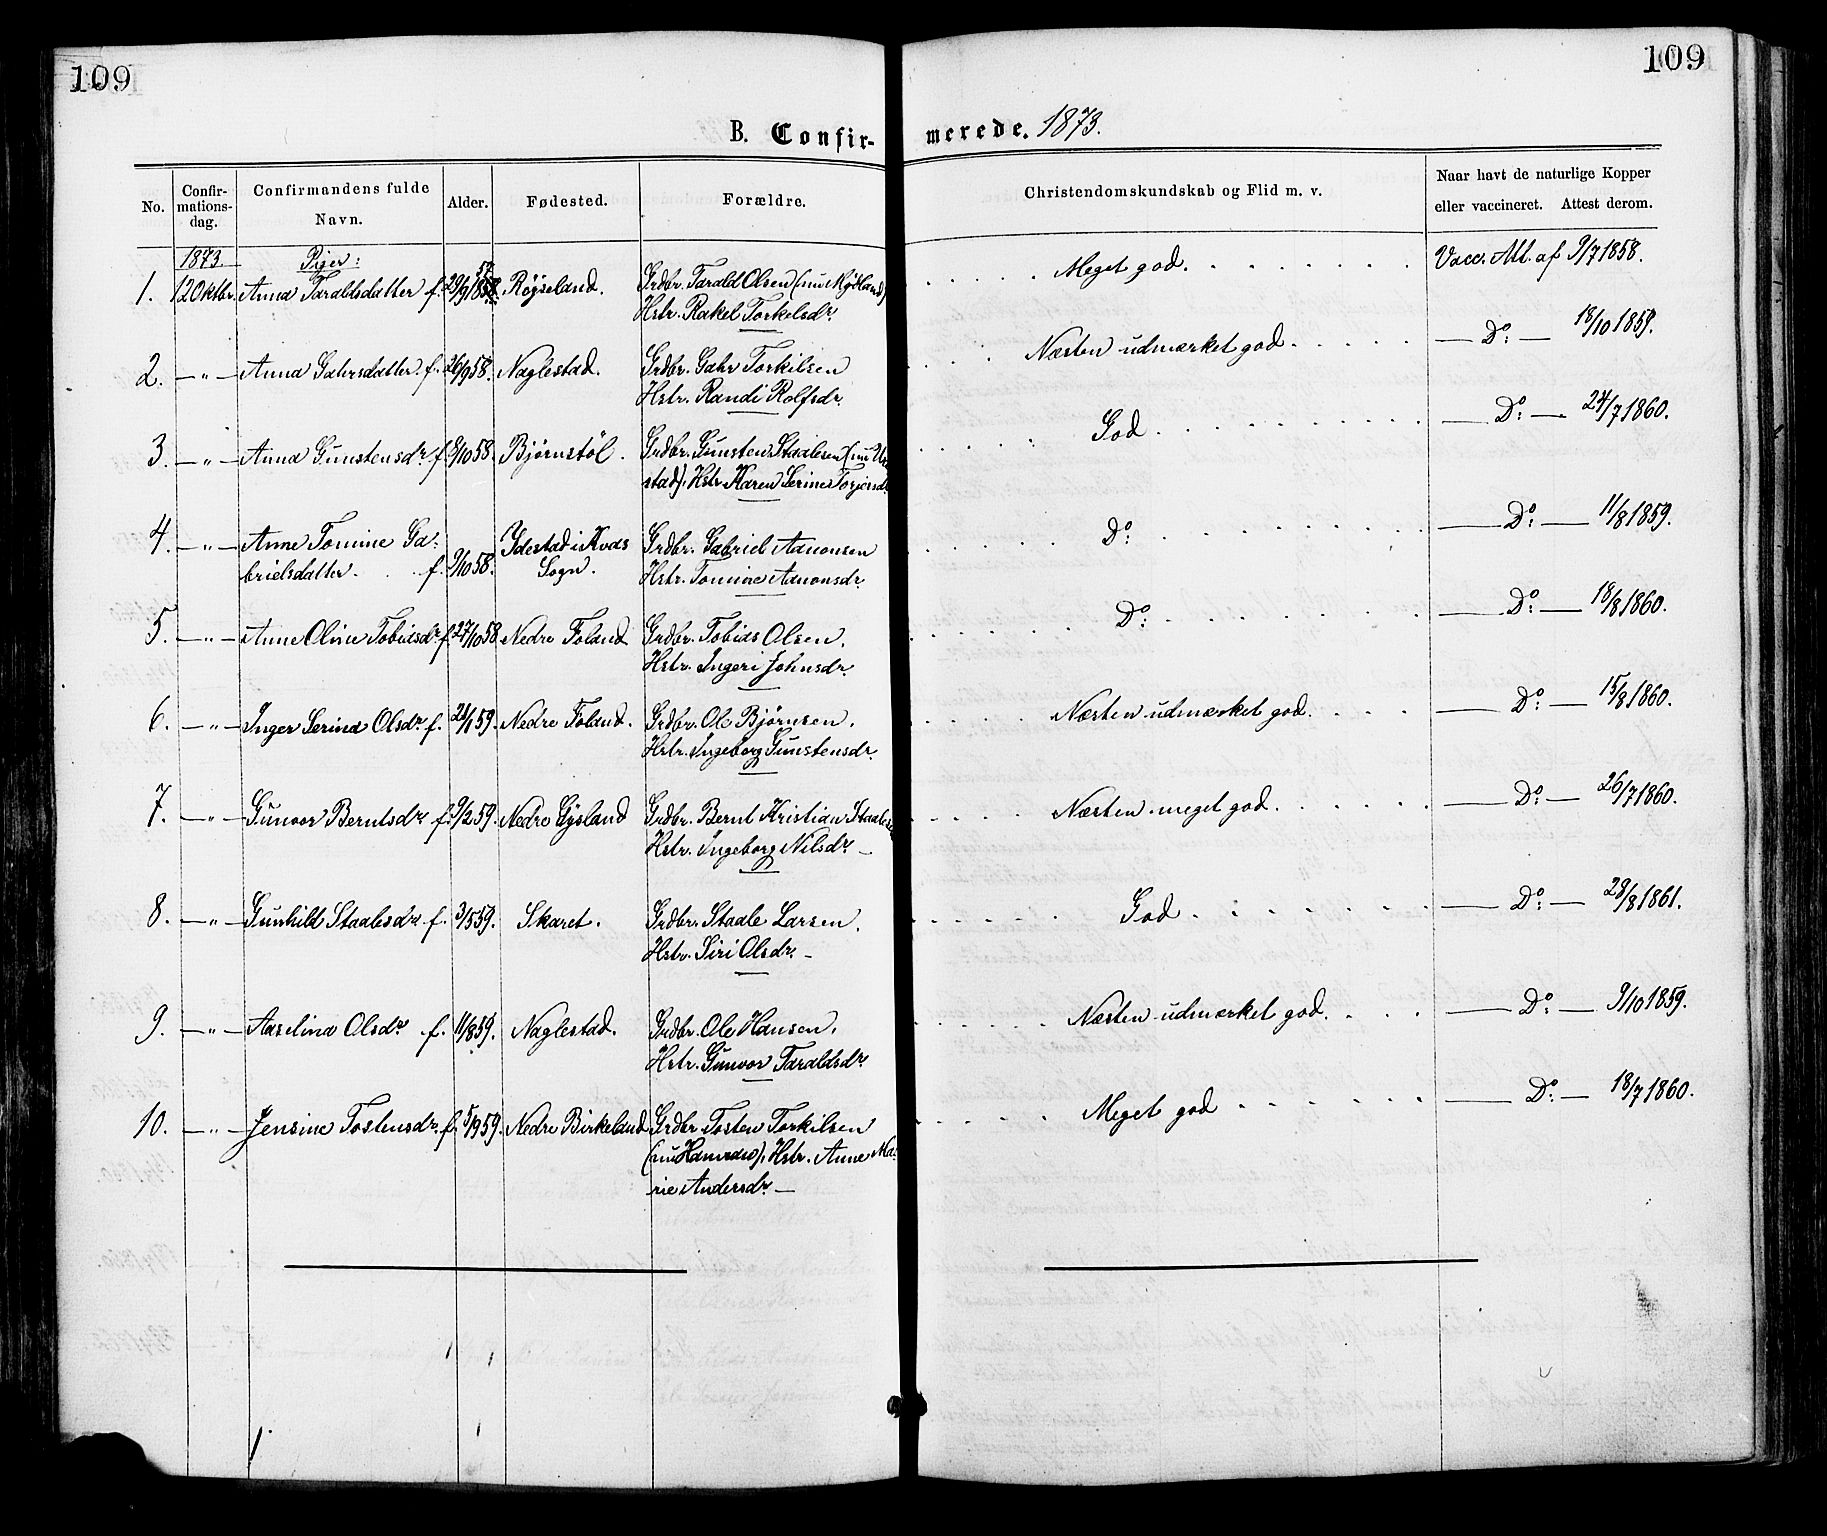 109
109
B. Confir- merede. 1873.
No.
Confir-
mations-
dag.
Confirmandens fulde
Navn.
Alder.
Fødested.
Forældre.
Christendomskundskab og Flid m. v.
Naar havt de naturlige Kopper
eller vaccineret. Attest derom.
1873. Piger:
1. 12 Oktbr. Anna Taraldsdatter f. 29/9 1857 Røyseland. Grdbr. Tarald Olsen (nu Mydland) Meget god. Vacc. Att. af 9/7 1858.
Hstr. Rakel Torkelsdr.
2. —"— Anna Gahrsdatter f. 26/9 58. Naglestad. Grdbr. Gahr Torkilsen Næsten udmærket god. — Do: — 18/10 1859.
Hstr. Randi Rolfsdr.
3. —"— Anna Gunstensdr. f. 8/10 58. Bjørnstøl. Grdbr. Gunsten Staalesen (nu God. — Do: — 24/7 1860.
stad), Hstr. Karen Serine Torjersdr.
4. —"— Anne Tomine Ga- Ydestad i Kvás Grdbr. Gabriel Aanonsen Do: — Do: — 11/8 1859.
brielsdatter. f. 9/10 58. Sogn. Hstr. Tomine Aanonsdr.
5. —"— Anne Oline Tobiasdr. f. 27/10 58. Nedre Foland Grdbr. Tobias Olsen. Do: — Do: — 18/8 1860.
Hstr. Ingeri Johnsdr.
6. —"— Inger Serina Olsdr. f. 21/1 59. Nedre Foland. Grdbr. Ole Bjørnsen. Næsten udmærket god. — Do: — 15/8 1860.
Hstr. Ingeborg Gunstensdr.
7. —"— Gunvor Berntsdr. f. 9/2 59. Nedre Gysland Grdbr. Bernt Kristian Staalesen Næsten meget god. — Do: — 26/7 1860.
Hstr. Ingeborg Nilsdr. —
8. —"— Gunhild Staalesdr. f. 3/5 59. Skaret. Grdbr. Staale Larsen. God. — Do: — 29/8 1861.
Hstr. Siri Olsdr. —
9. —"— Aaselina Olsdr. f. 11/8 59. Naglestad. Grdbr. Ole Hansen. Næsten udmærket god. — Do: — 9/10 1859.
Hstr. Gunvor Taraldsdr.
10. —"— Jensine Tostensdr. f. 5/9 59. Nedre Birkeland Grdbr. Tosten Torkilsen Meget god — Do: — 18/7 1860.
(nu Hamraas), Hstr. Anne Ma-
rie Andersdr. —